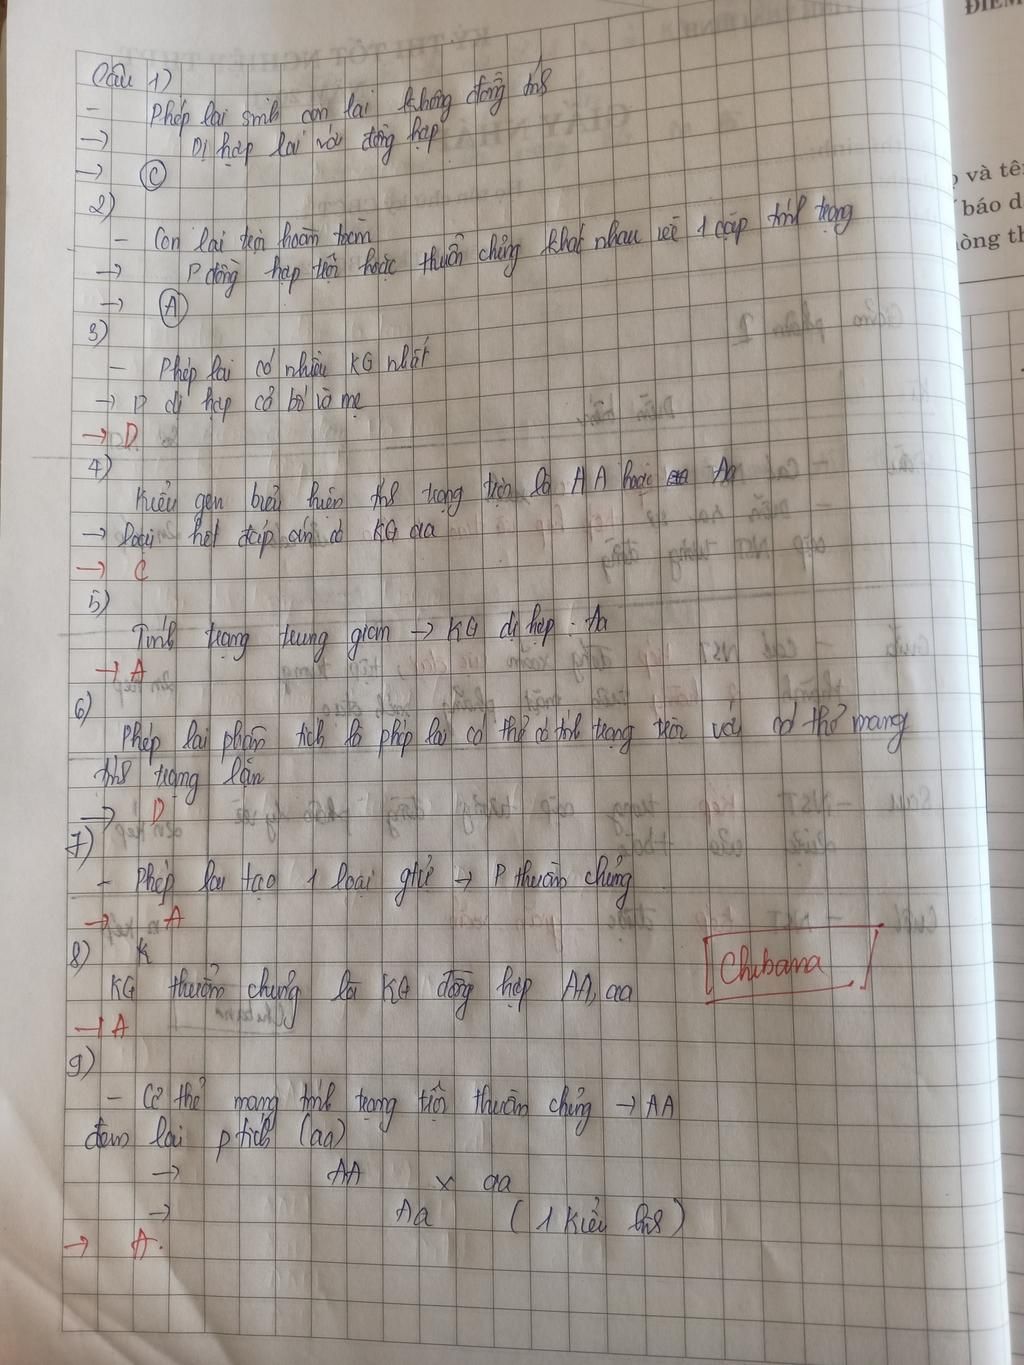 Câu 1)
- Phép lai sinh con lai không đồng tính
→ Dị hợp lai với đồng hợp
→ C
2)
- Con lai trội hoàn toàn
→ P đồng hợp trội hoặc thuần chủng khác nhau về 1 cặp tính trạng
→ A
3)
- Phép lai có nhiều KG nhất
→ P dị hợp cả bố và mẹ
→ D
4)
Kiểu gen biểu hiện tính trạng trội là AA hoặc Aa
→ loại hết đáp án có KG aa
→ C
5)
Tính trạng trung gian → KG dị hợp : Aa
→ A
6)
Phép lai phân tích là phép lai cơ thể có tính trạng trội với cơ thể mang
tính trạng lặn
→ D
7)
- Phép lai tạo 1 loại gtử → P thuần chủng
→ A
8) K
KG thuần chủng là KG đồng hợp AA, aa
→ A
Chibana
9)
- Cơ thể mang tính trạng trội thuần chủng → AA
đem lai ptích (aa)
→ AA x aa
→ Aa (1 kiểu hình)
→ A.
và tê
báo d